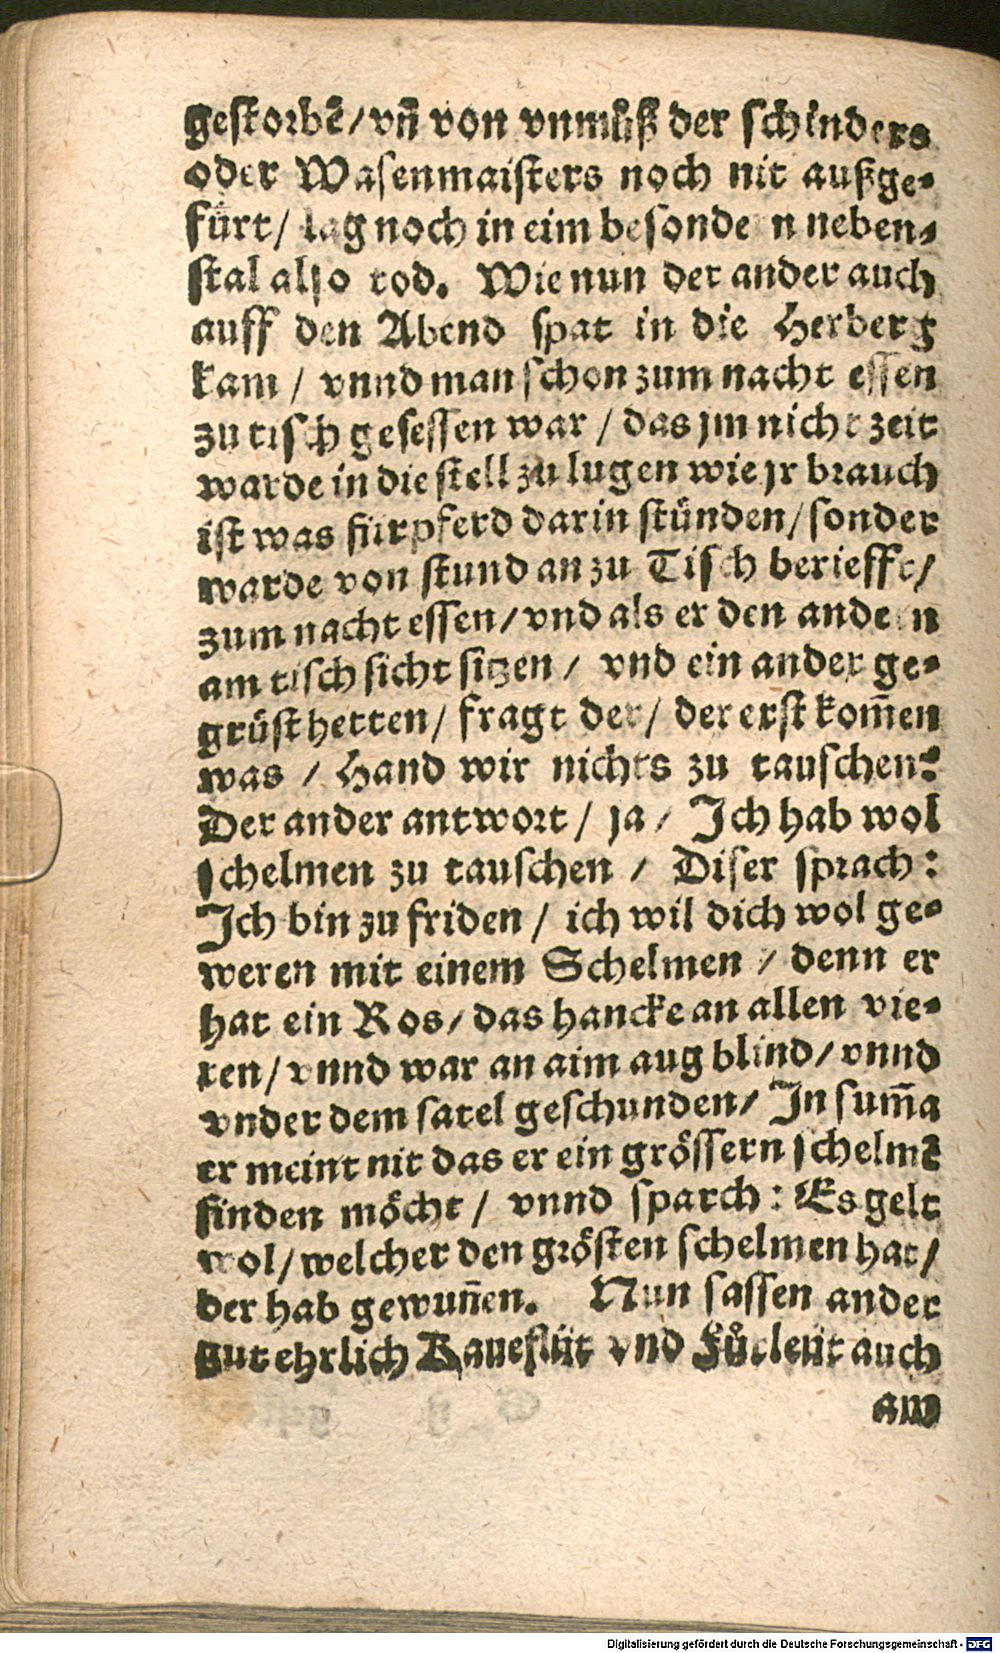 gestorbē/vn̄ von vnmůß der schinders
oder Wasenmaisters noch nit außge⸗
fürt/ lag noch in eim besondern neben⸗
stal also tod. Wie nun der ander auch
auff den Abend spat in die Herberg
kam / vnnd man schon zum nacht essen
zu tisch gesessen war / das jm nicht zeit
warde in die stell zu lugen wie jr brauch
ist was für pferd darin stünden/sonder
warde von stund an zu Tisch beriefft/
zum nacht essen/vnd als er den andern
am tisch sicht sitzen / vnd ein ander ge⸗
grüst hetten/ fragt der/ der erst kom̄en
was / Hand wir nichts zu tauschen?
Der ander antwort / ja / Ich hab wol
schelmen zu tauschen / Diser sprach:
Ich bin zu friden / ich wil dich wol ge⸗
weren mit einem Schelmen / denn er
hat ein Ros/ das hancke an allen vie⸗
ren/ vnnd war an aim aug blind/vnnd
vnder dem satel geschunden/ In sum̄a
er meint nit das er ein grössern schelmē
finden möcht / vnnd sparch: Es gelt
wol/welcher den grösten schelmen hat/
der hab gewun̄en. Nun sassen ander
gut ehrlich Kaueflüt vnd Fůrleüt auch
am